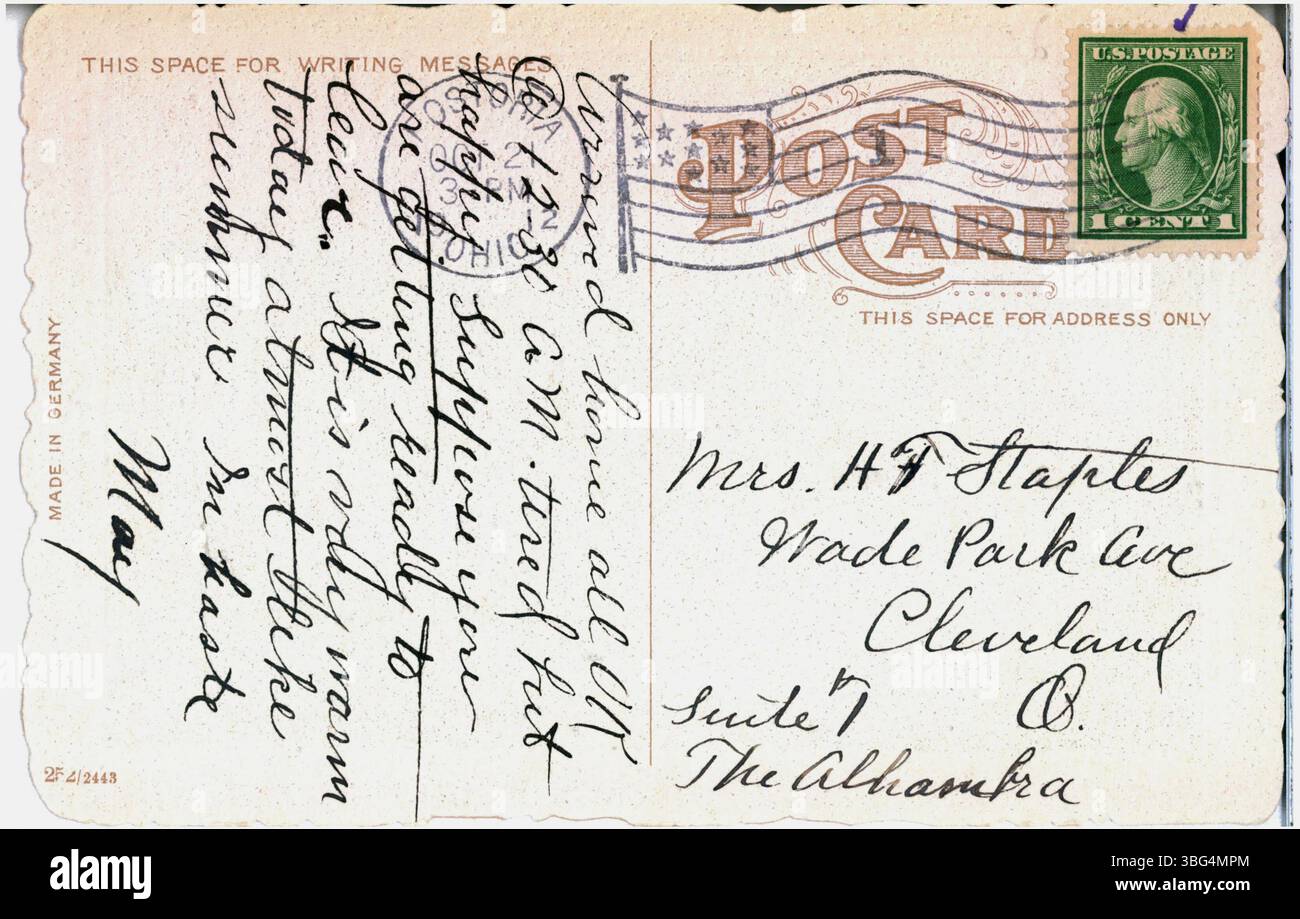 THIS SPACE FOR WRITING MESSAGES
Arrived home all OK
@ 12-30 A.M. tired but
happy. Suppose you
are getting ready to
leave. It is very warm
today almost like
summer In haste
May
MADE IN GERMANY
252/2443
FOSTORIA
OCT 21
3 PM
OHIO
POST
CARD
THIS SPACE FOR ADDRESS ONLY
U.S. POSTAGE
1 CENT 1
Mrs. H F Staples
Wade Park Ave
Cleveland
Suite 7 O.
The Alhambra
alamy
Image ID: 3BG4MPM
www.alamy.com